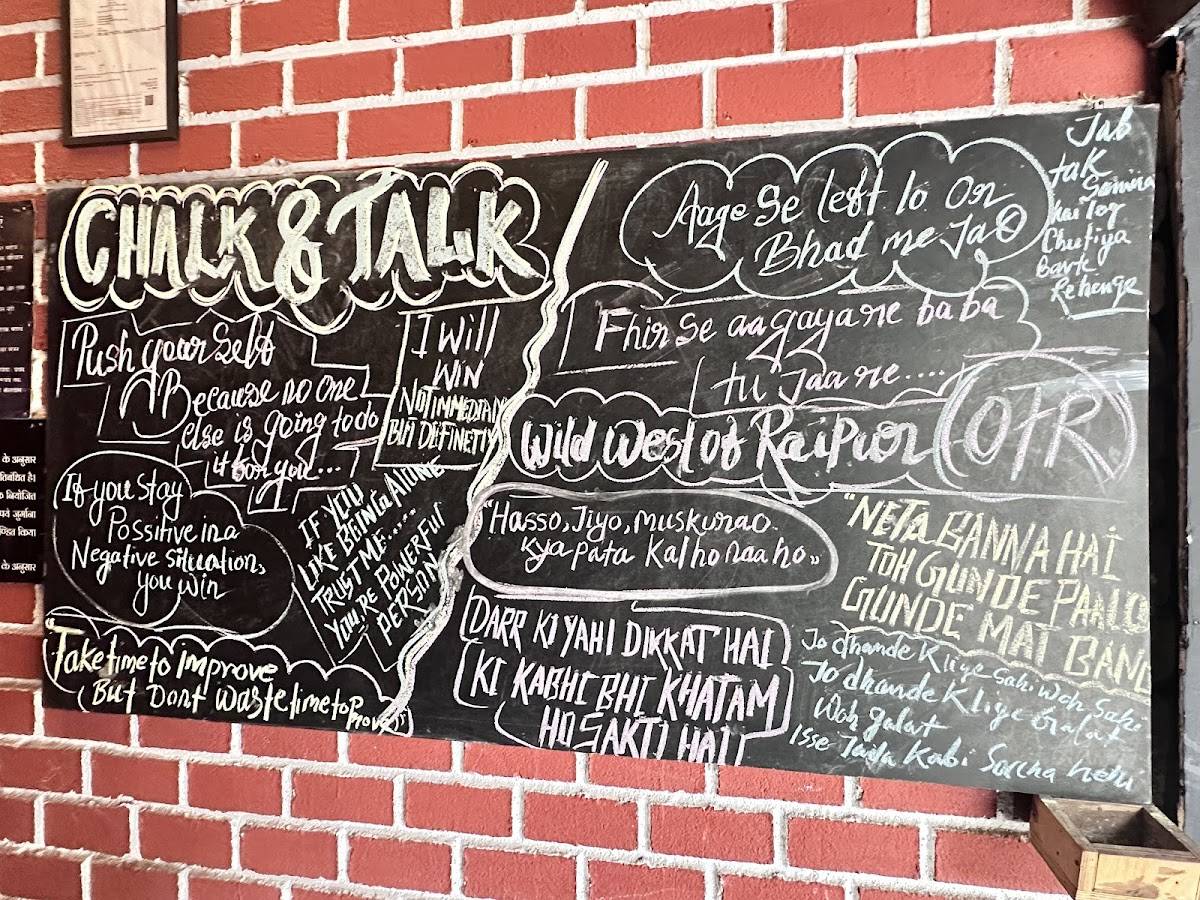 CHALK & TALK
Push yourself
Because no one
else is going to do
it for you...
I Will
WIN
NOT IMMEDIATLY
BUT DEFINETLY
If you stay
Possitive in a
Negative situation,
you win
IF YOU
LIKE BEING ALONE
TRUST ME.....
YOU'RE POWERFUL
PERSON
"Take time to improve
But Dont waste time to Prove"
Aage se left lo or
Bhad me Jao
Jab
tak
Samina
hai log
Chutiya
Bante
Rehenge
Fhir se aagaya re baba
tu Jaa re....
Wild West of Raipur
OTR
"Hasso, Jiyo, Muskurao
kya pata Kal ho naa ho"
"NETA BANNA HAI
TOH GUNDE PAALO
GUNDE MAT BANO
DARR KI YAHI DIKKAT HAI
KI KABHI BHI KHATAM
HO SAKTI HAI
Jo dhande K liye sahi woh Sahi
Jo dhande K liye Galat
Woh galat
Isse Jada Kabi Soccha nehi
के अनुसार
के नियोजित
पये जुर्माना
ण्डित किया
के अनुसार